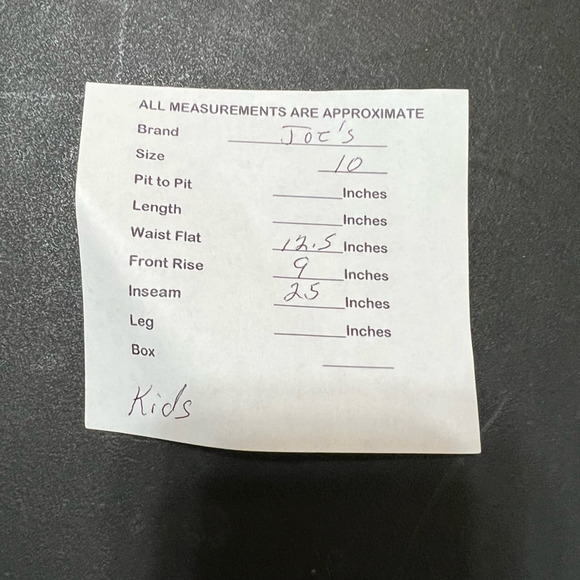 ALL MEASUREMENTS ARE APPROXIMATE
Brand Joe's
Size 10
Pit to Pit Inches
Length Inches
Waist Flat 12.5 Inches
Front Rise 9 Inches
Inseam 25 Inches
Leg Inches
Box
Kids